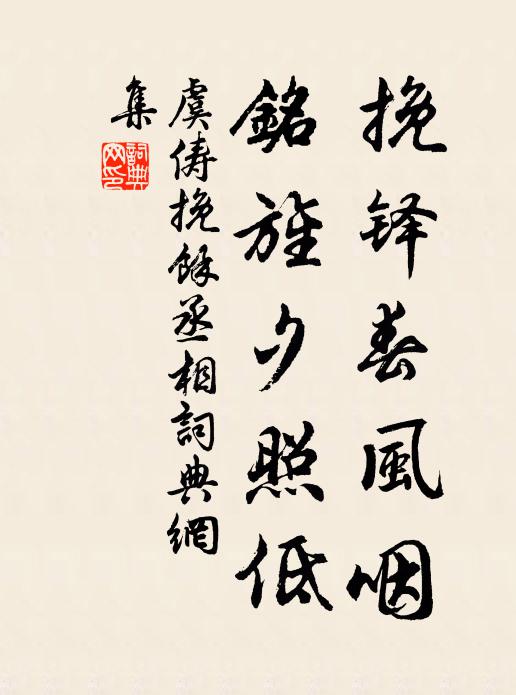 挽铎春風咽
銘旌夕照低
虞儔挽餘丞相詞典網
集
詞典網印